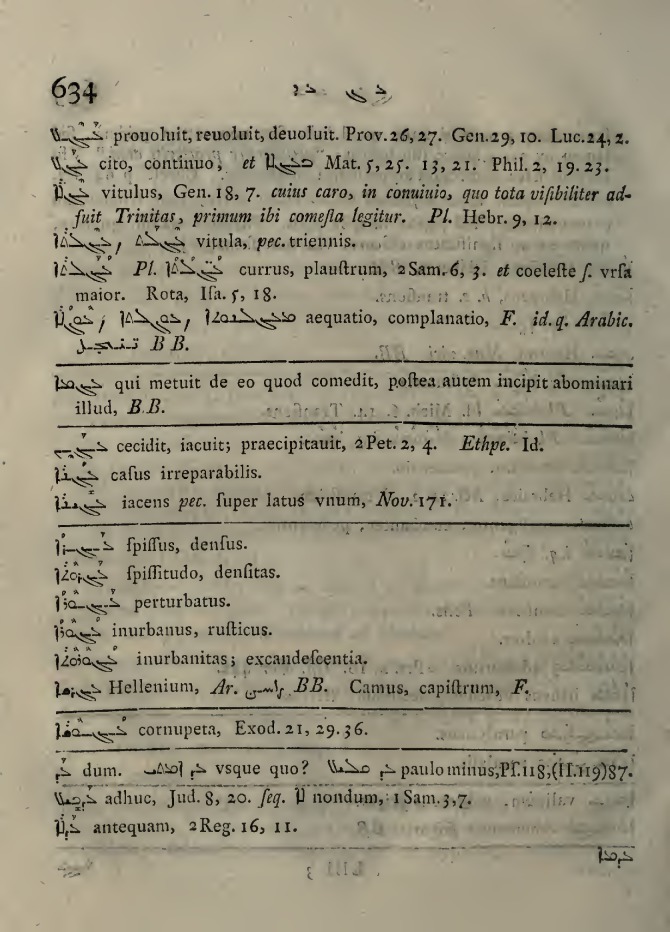 634 ܥܓ ܥܕ
ܥܓܠ prouoluit, reuoluit, deuoluit. Prov. 26, 27. Gen. 29, 10. Luc. 24, 2.
ܥܓܠ cito, continuo; et ܒܥܓܠܐ Mat. 5, 25. 13, 21. Phil. 2, 19. 23.
ܥܓܠܐ vitulus, Gen. 18, 7. cuius caro, in conuiuio, quo tota viſibiliter ad-
fuit Trinitas, primum ibi comeſta legitur. Pl. Hebr. 9, 12.
vitula, pec. triennis.
ܥܓܠܬܐ Pl. ܥܓܠܬܐ currus, plauſtrum, 2 Sam. 6, 3. et coeleſte ſ. vrſa
maior. Rota, Iſa. 5, 18.
aequatio, complanatio, F. id. q. Arabic.
B B.
ܥܓܡܐ qui metuit de eo quod comedit, poſtea autem incipit abominari
illud, B. B.
ܥܓܢ cecidit, iacuit; praecipitauit, 2 Pet. 2, 4. Ethpe. Id.
ܥܓܢܐ caſus irreparabilis.
ܥܓܝܢܐ iacens pec. ſuper latus vnum, Nov. 171.
ſpiſſus, denſus.
ſpiſſitudo, denſitas.
perturbatus.
inurbanus, ruſticus.
inurbanitas; excandeſcentia.
Hellenium, Ar. راسن BB. Camus, capiſtrum, F.
cornupeta, Exod. 21, 29. 36.
ܥܕ dum. ܥܕ ܐܡܬܝ vsque quo? ܥܕ ܩܠܝܠ paulo minus, Pſ. 118, (H. 119) 87.
ܥܕܟܝܠ adhuc, Jud. 8, 20. ſeq. ܠܐ nondum, 1 Sam. 3, 7.
ܥܕܠܐ antequam, 2 Reg. 16, 11.